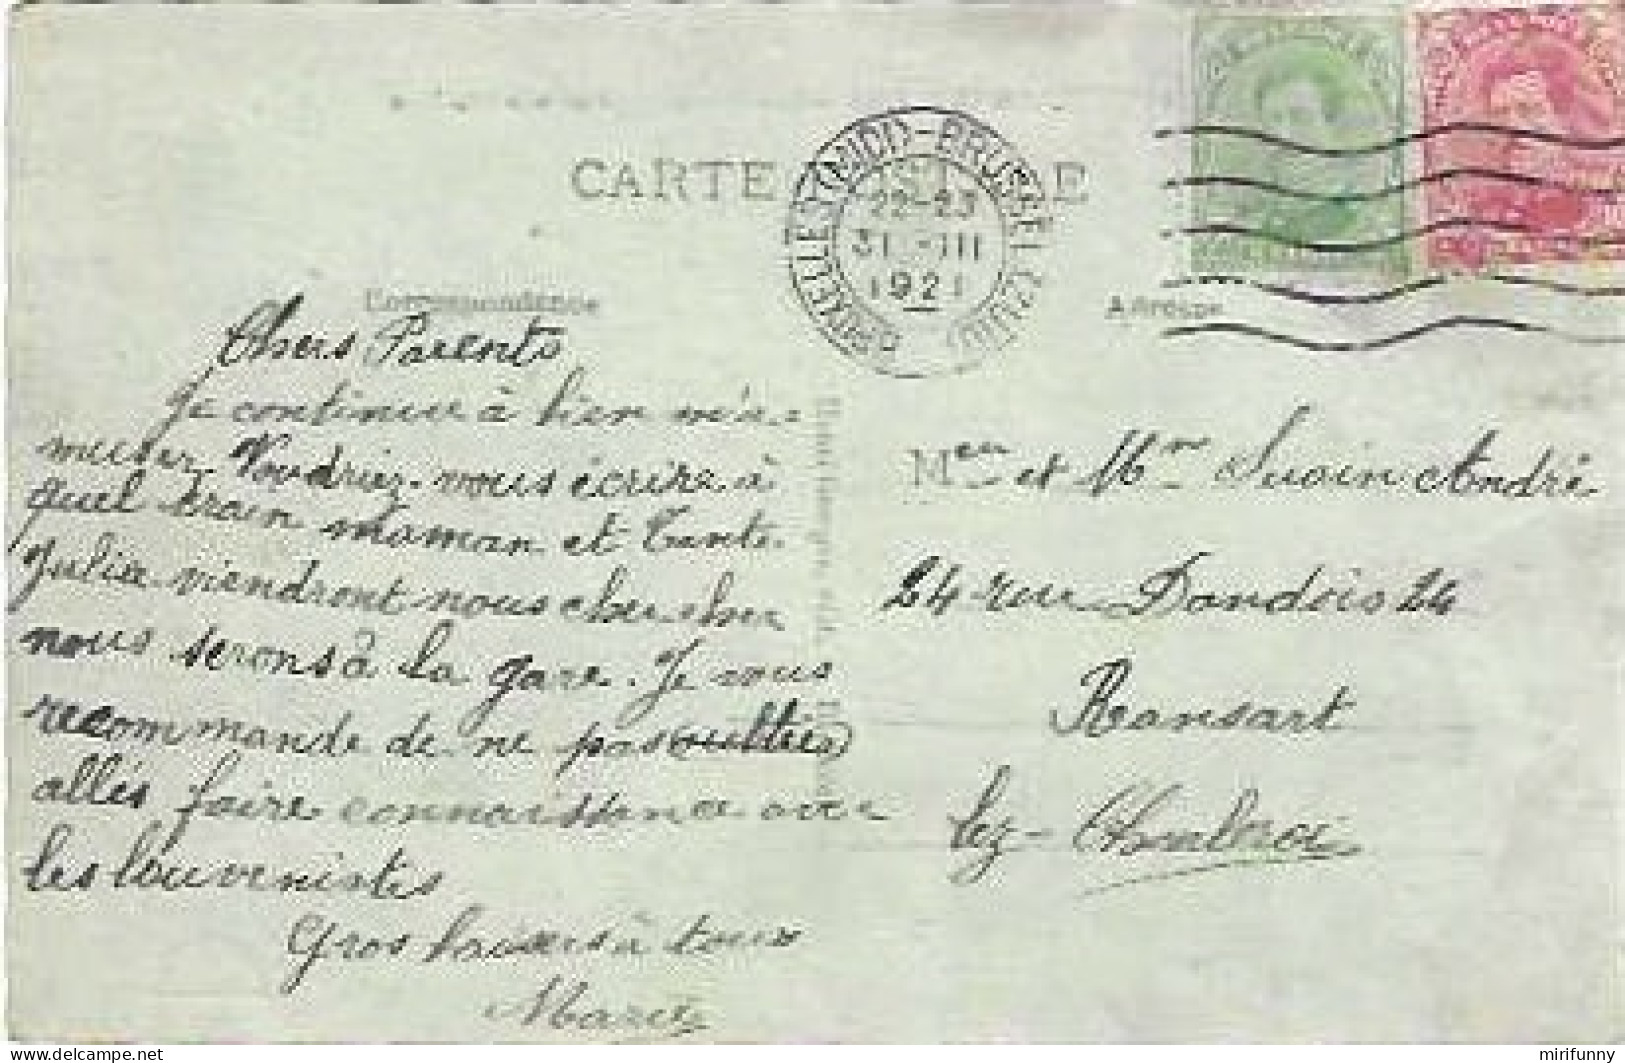 CARTE
BRUXELLES (MIDI)-BRUSSEL (ZUID)
22-23
31 III
1921
Correspondance
Adresse
Chers Parents
Je continue à bien m'a-
muser. Voudriez-vous écrire à
quel train maman et Tante
Julia viendront nous chercher
nous serons à la gare. Je vous
recommande de ne pas oublier
allés faire connaissance avec
les louvenistes
Gros baisers à tous
Marie
Meur et Mme André
24 rue Dandois 24
Ransart
lez-Charleroi
mirifunny